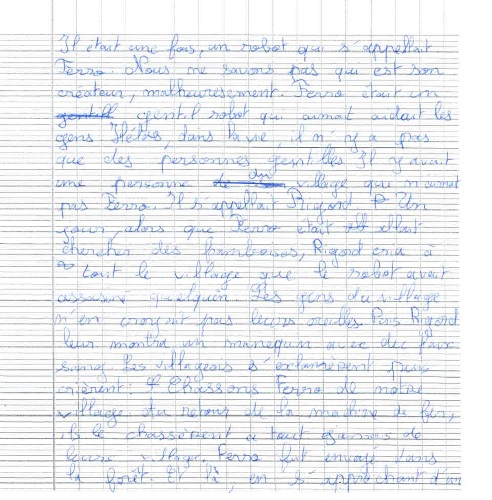 Il était une fois, un robot qui s'appellait
Ferro. Nous ne savons pas qui est son
créateur, malheuresement. Ferro était un
gentil robot qui aimait aidait les
gens Hélas, dans la vie, il n'y a pas
que des personnes gentilles Il y avait
une personne du village qui n'aimait
pas Ferro. Il s'appellait Rigord. Un
jour, alors que Ferro était allait
chercher des framboises, Rigord cria à
tout le village que le robot avait
assasiné quelqu'un. Les gens du village
n'en croyait pas leurs oreilles. Puis Rigord
leur montra un manequin avec du faux
sang. Les villageois s'exclamèrent puis
crièrent: Chassons Ferro de notre
village. Au retour de la machine de fer,
ils le chassèrent a tout jamais de
leurs village. Ferro fut envoyé dans
la forêt. Et là, en s'approchant d'un